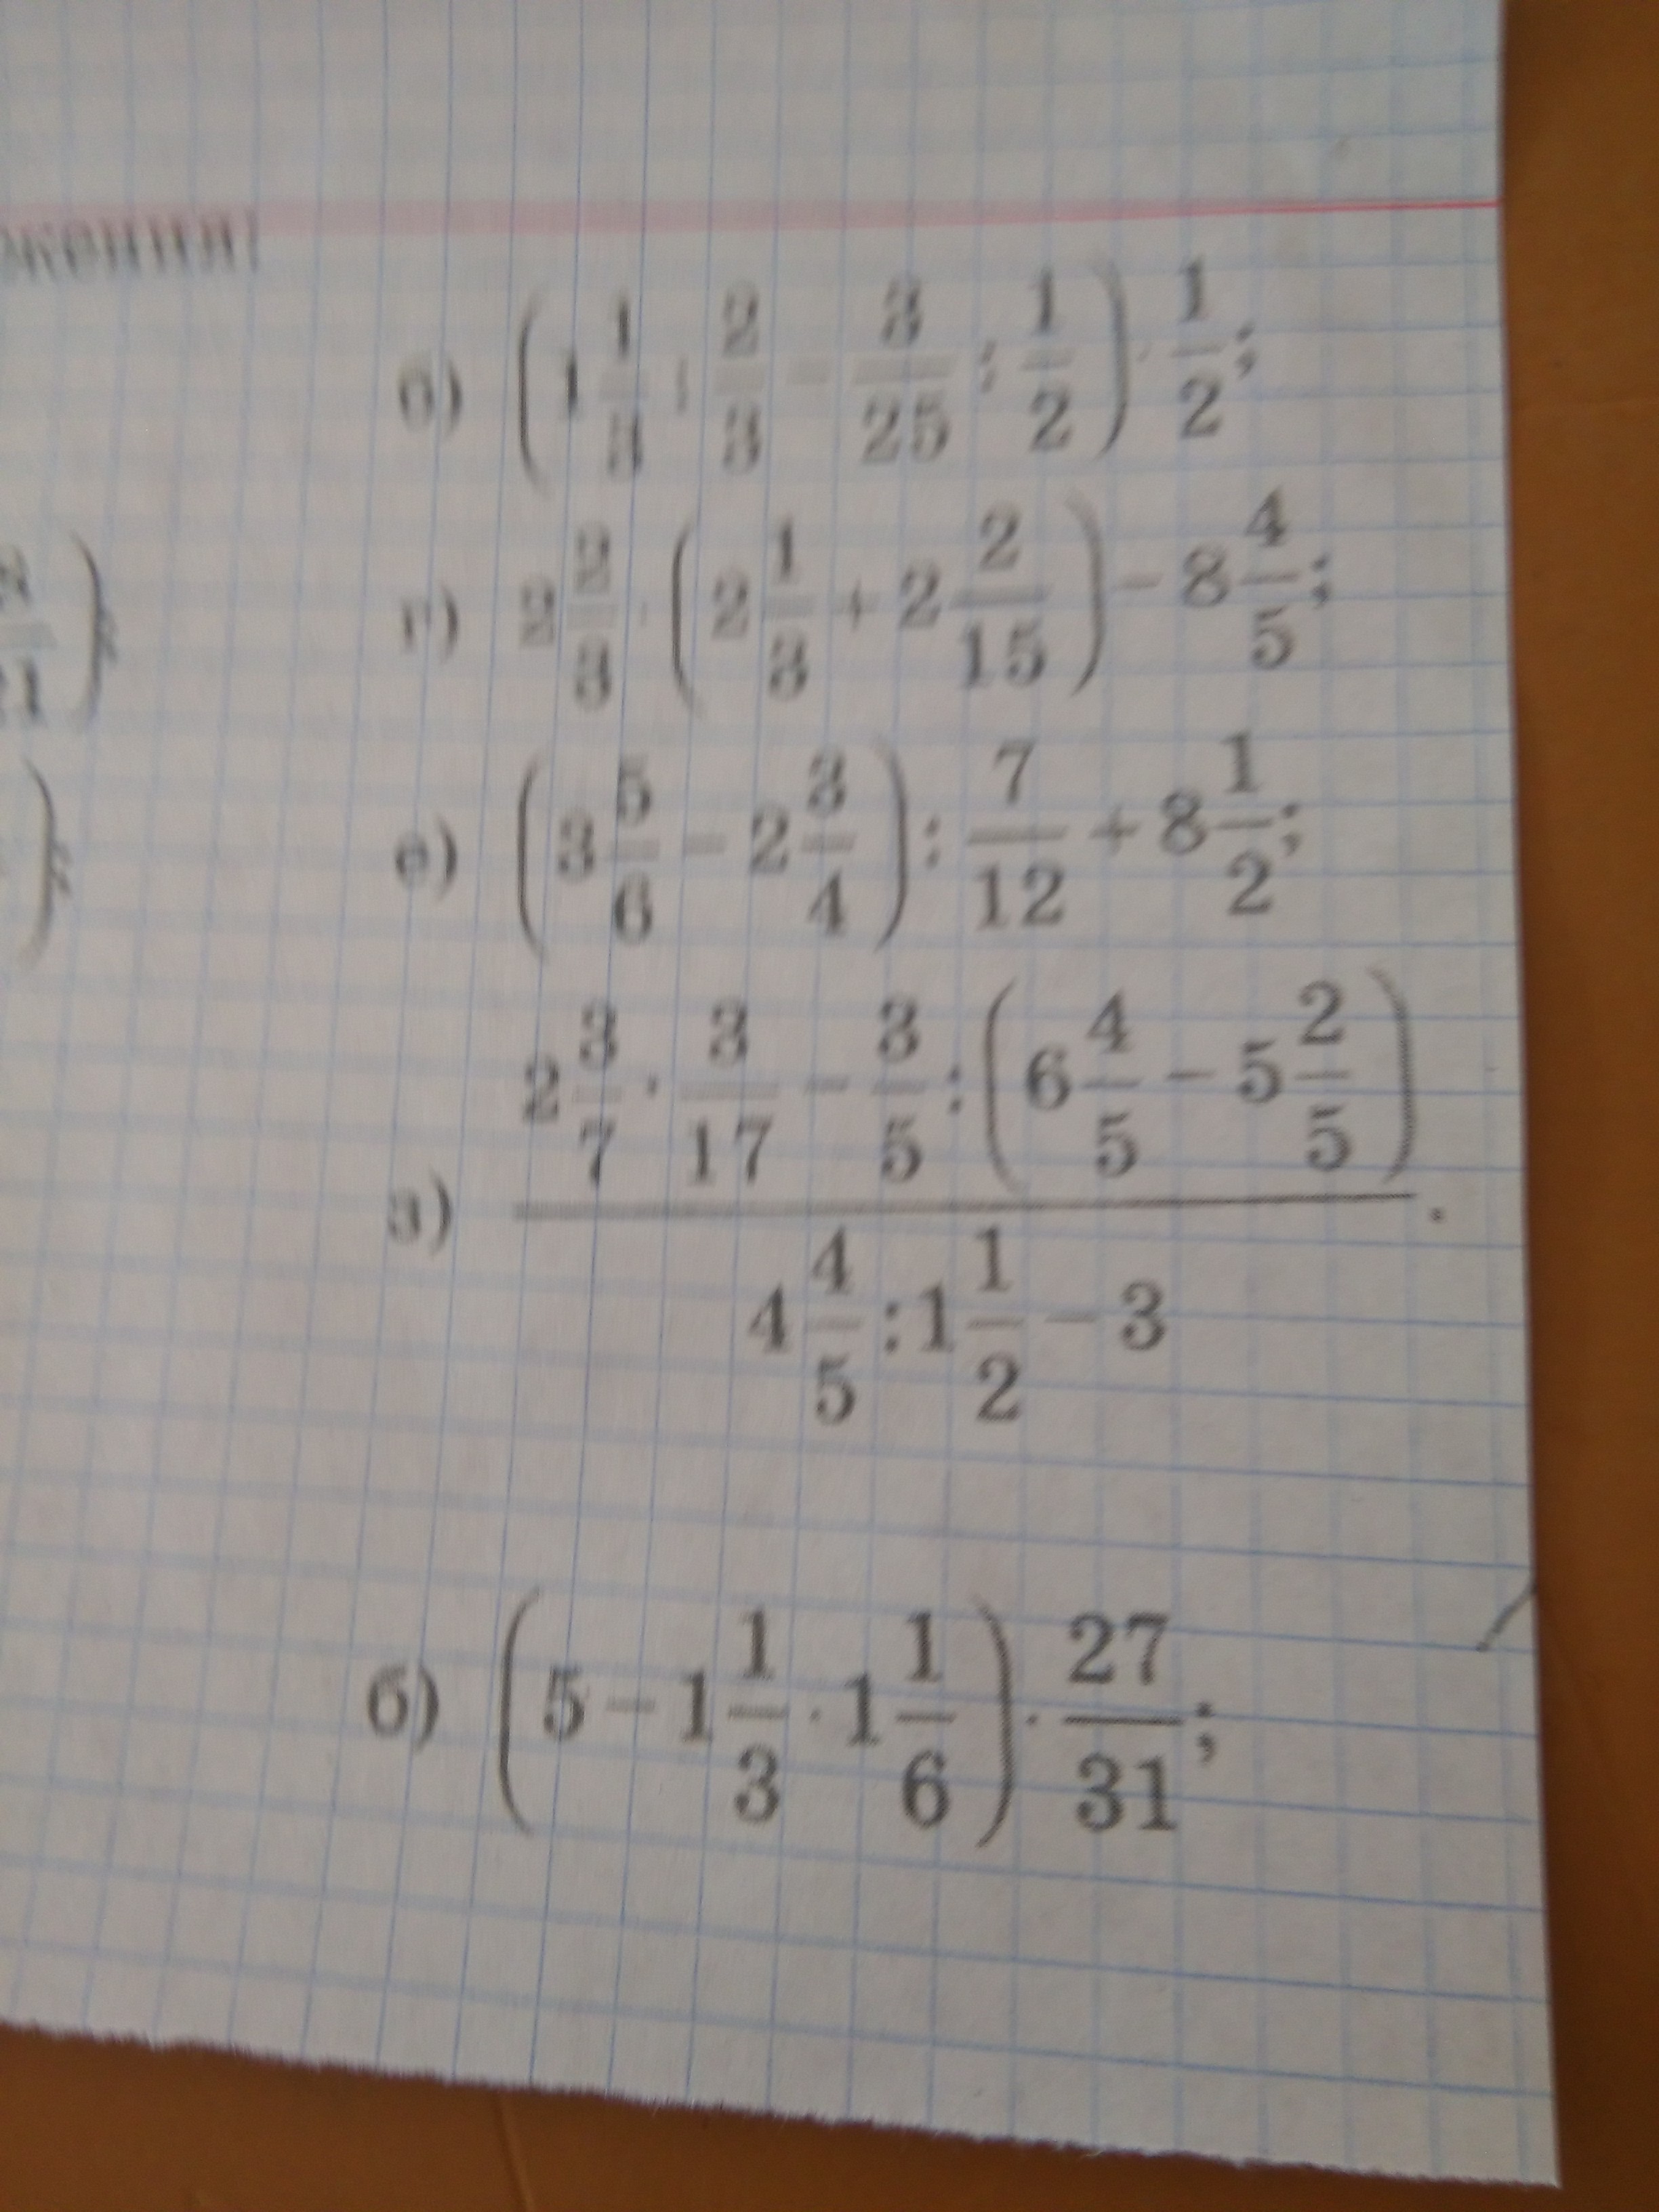 жения:
б) (1 1/3 : 2/3 − 3/25 : 1/2) · 1/2;
г) 2 2/3 · (2 1/3 + 2 2/15) − 8 4/5;
21);
е) (3 5/6 − 2 3/4) : 7/12 + 8 1/2;
);
з) (2 3/7 · 3/17 − 3/5 : (6 4/5 − 5 2/5)) / (4 4/5 : 1 1/2 − 3).
б) (5 − 1 1/3 · 1 1/6) · 27/31;